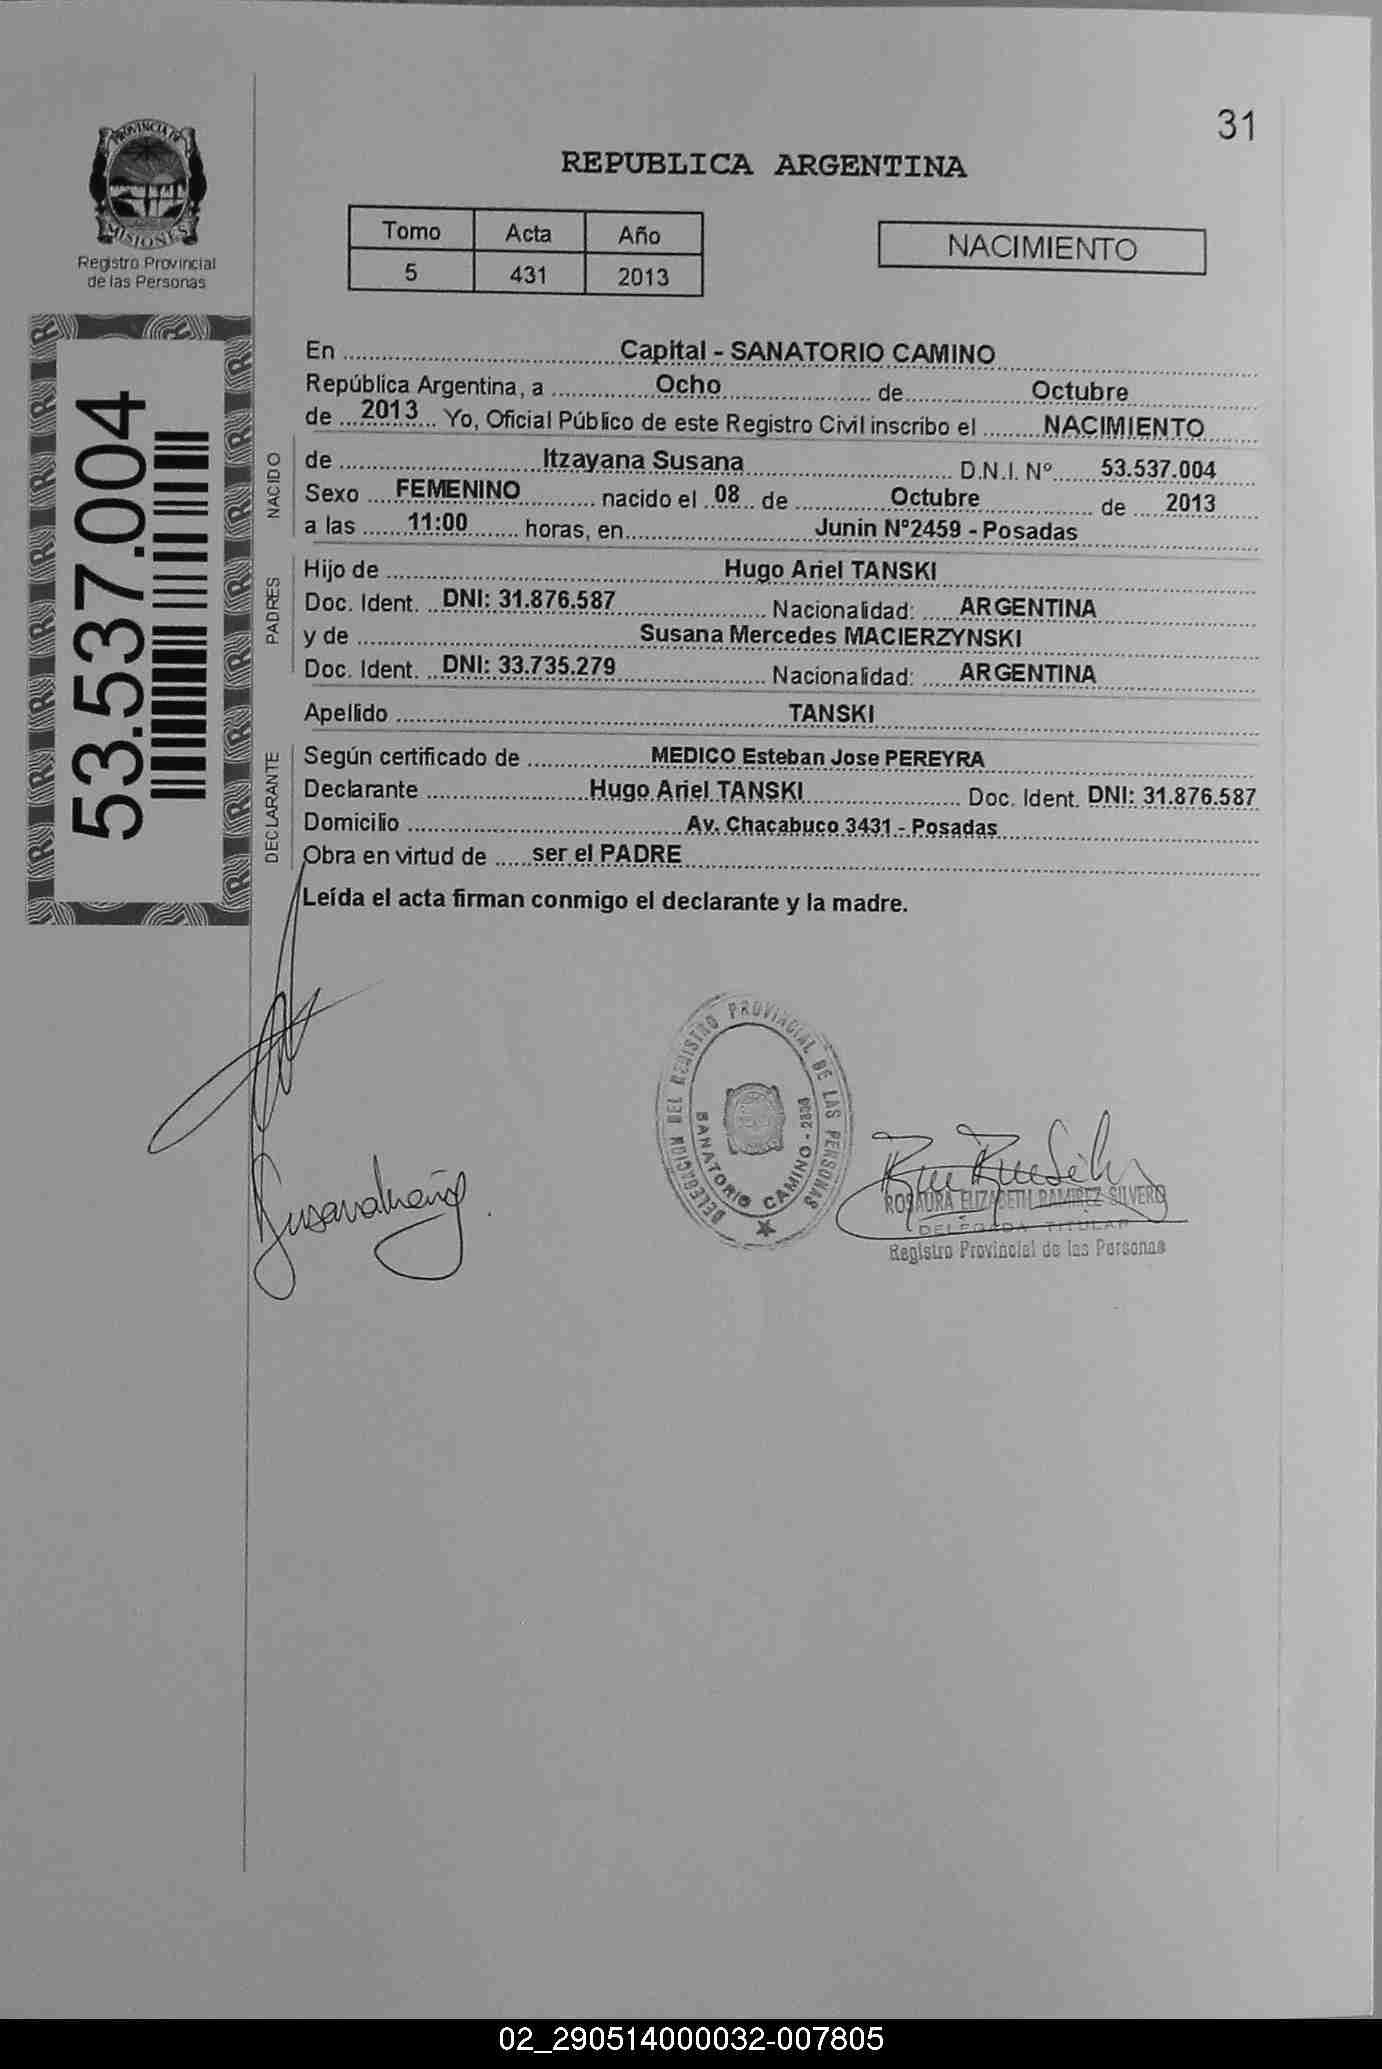 31
REPUBLICA ARGENTINA
PROVINCIA DE
MISIONES
Registro Provincial
de las Personas
Tomo Acta Año
5 431 2013
NACIMIENTO
53.537.004
En Capital - SANATORIO CAMINO
República Argentina, a Ocho de Octubre
de 2013 Yo, Oficial Público de este Registro Civil inscribo el NACIMIENTO
NACIDO
de Itzayana Susana D.N.I. Nº 53.537.004
Sexo FEMENINO nacido el 08 de Octubre de 2013
a las 11:00 horas, en Junin Nº2459 - Posadas
PADRES
Hijo de Hugo Ariel TANSKI
Doc. Ident. DNI: 31.876.587 Nacionalidad: ARGENTINA
y de Susana Mercedes MACIERZYNSKI
Doc. Ident. DNI: 33.735.279 Nacionalidad: ARGENTINA
Apellido TANSKI
DECLARANTE
Según certificado de MEDICO Esteban Jose PEREYRA
Declarante Hugo Ariel TANSKI Doc. Ident. DNI: 31.876.587
Domicilio Av. Chacabuco 3431 - Posadas
Obra en virtud de ser el PADRE
Leída el acta firman conmigo el declarante y la madre.
DELEGACION DEL REGISTRO PROVINCIAL DE LAS PERSONAS
SANATORIO CAMINO -
ROSAURA ELIZABETH RAMIREZ SILVERO
DELEGADA TITULAR
Registro Provincial de las Personas
02_290514000032-007805